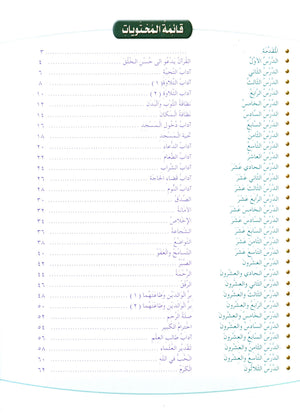 قائمة المحتويات
المقدمة ٣
الدرس الأول القرآن يدعو إلى حسن الخلق ٤
الدرس الثاني آداب التحية ٦
الدرس الثالث آداب التلاوة (١) ٨
الدرس الرابع آداب التلاوة (٢) ١٠
الدرس الخامس نظافة الثوب والبدن ١٢
الدرس السادس نظافة المكان ١٤
الدرس السابع آداب دخول المسجد ١٦
الدرس الثامن تحية المسجد ١٨
الدرس التاسع آداب الدعاء ٢٠
الدرس العاشر آداب الطعام ٢٢
الدرس الحادي عشر آداب الشراب ٢٤
الدرس الثاني عشر آداب قضاء الحاجة ٢٦
الدرس الثالث عشر آداب النوم ٢٨
الدرس الرابع عشر الصدق ٣٠
الدرس الخامس عشر الأمانة ٣٢
الدرس السادس عشر الإخلاص ٣٤
الدرس السابع عشر الشجاعة ٣٦
الدرس الثامن عشر التواضع ٣٨
الدرس التاسع عشر التسامح والعفو ٤٠
الدرس العشرون الصبر ٤٢
الدرس الحادي والعشرون الرحمة ٤٤
الدرس الثاني والعشرون الرفق ٤٦
الدرس الثالث والعشرون بر الوالدين وطاعتهما (١) ٤٨
الدرس الرابع والعشرون بر الوالدين وطاعتهما (٢) ٥٠
الدرس الخامس والعشرون صلة الرحم ٥٢
الدرس السادس والعشرون احترام الكبير ٥٤
الدرس السابع والعشرون آداب طالب العلم ٥٦
الدرس الثامن والعشرون تقدير العلماء ٥٨
الدرس التاسع والعشرون الحب في الله ٦٠
الدرس الثلاثون الكرم ٦٢